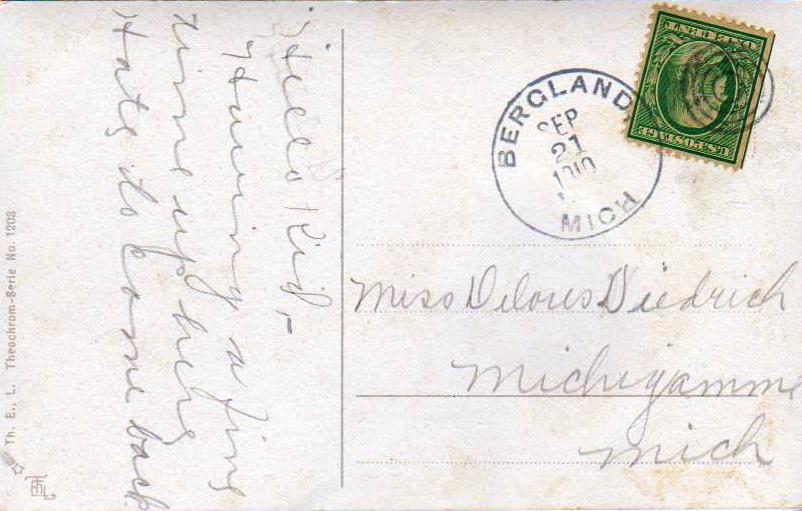 Hello Kid,-
Having a fine
time up here
Hate to come back
BERGLAND
SEP
21
1910
MICH
U.S. POSTAGE
ONE CENT
Miss Delores Diedrich
Michigamme
Mich
Th. E., L. Theochrom-Serie No. 1208